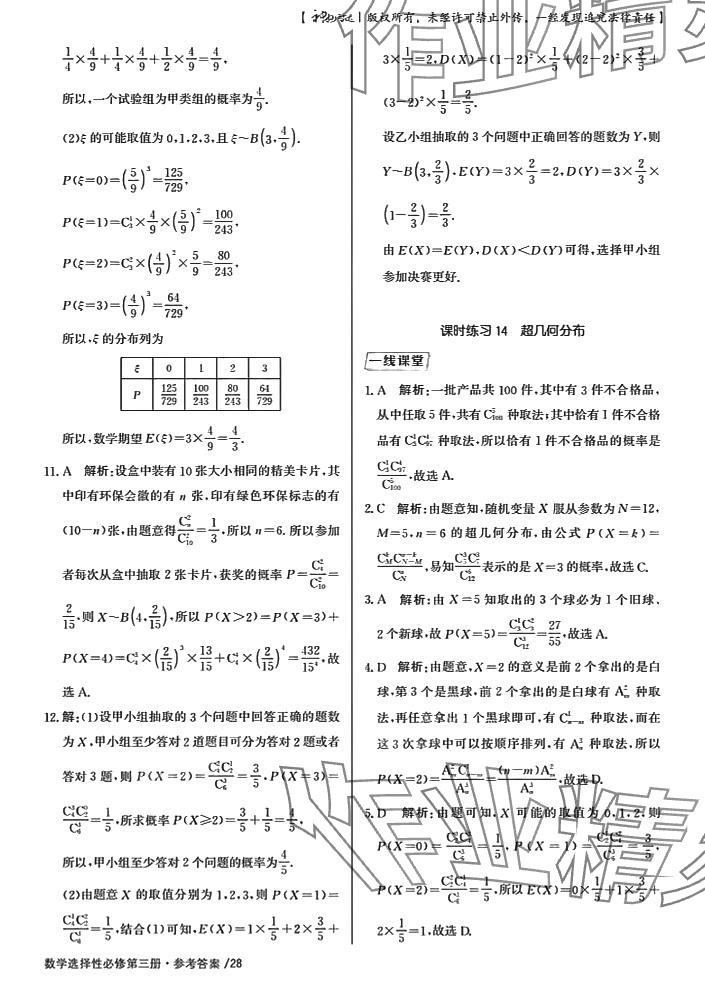 【 | 版权所有，未经许可禁止外传，一经发现追究法律责任】
1/4×4/9+1/4×4/9+1/2×4/9=4/9,
所以,一个试验组为甲类组的概率为4/9.
(2)ξ的可能取值为0,1,2,3,且ξ~B(3,4/9).
P(ξ=0)=(5/9)³=125/729,
P(ξ=1)=C₃¹×4/9×(5/9)²=100/243,
P(ξ=2)=C₃²×(4/9)²×5/9=80/243,
P(ξ=3)=(4/9)³=64/729,
所以,ξ的分布列为
ξ 0 1 2 3
P 125/729 100/243 80/243 64/729
所以,数学期望E(ξ)=3×4/9=4/3.
11. A 解析:设盒中装有10张大小相同的精美卡片,其
中印有环保会徽的有n张,印有绿色环保标志的有
(10-n)张,由题意得Cₙ²/C₁₀²=1/3,所以n=6.所以参加
者每次从盒中抽取2张卡片,获奖的概率P=C₄²/C₁₀²=
2/15,则X~B(4,2/15),所以P(X>2)=P(X=3)+
P(X=4)=C₄³×(2/15)³×13/15+C₄⁴×(2/15)⁴=432/15⁴,故
选A.
12. 解:(1)设甲小组抽取的3个问题中回答正确的题数
为X,甲小组至少答对2道题目可分为答对2题或者
答对3题,则P(X=2)=C₄²C₂¹/C₆³=3/5,P(X=3)=
C₄³C₂⁰/C₆³=1/5,所求概率P(X≥2)=3/5+1/5=4/5,
所以,甲小组至少答对2个问题的概率为4/5.
(2)由题意X的取值分别为1,2,3,则P(X=1)=
C₄¹C₂²/C₆³=1/5,结合(1)可知,E(X)=1×1/5+2×3/5+
3×1/5=2,D(X)=(1-2)²×1/5+(2-2)²×3/5+
(3-2)²×1/5=2/5.
设乙小组抽取的3个问题中正确回答的题数为Y,则
Y~B(3,2/3),E(Y)=3×2/3=2,D(Y)=3×2/3×
(1-2/3)=2/3.
由E(X)=E(Y),D(X)<D(Y)可得,选择甲小组
参加决赛更好.
课时练习14 超几何分布
一线课堂
1. A 解析:一批产品共100件,其中有3件不合格品,
从中任取5件,共有C₁₀₀⁵种取法;其中恰有1件不合格
品有C₃¹C₉₇⁴种取法,所以恰有1件不合格品的概率是
C₃¹C₉₇⁴/C₁₀₀⁵,故选A.
2. C 解析:由题意知,随机变量X服从参数为N=12,
M=5,n=6的超几何分布,由公式P(X=k)=
C_M^k C_{N-M}^{n-k}/C_N^n,易知C₅³C₇³/C₁₂⁶表示的是X=3的概率,故选C.
3. A 解析:由X=5知取出的3个球必为1个旧球,
2个新球,故P(X=5)=C₃²C₉¹/C₁₂³=27/55,故选A.
4. D 解析:由题意,X=2的意义是前2个拿出的是白
球,第3个是黑球,前2个拿出的是白球有Aₘ²种取
法,再任意拿出1个黑球即可,有Cₙ₋ₘ¹种取法,而在
这3次拿球中可以按顺序排列,有Aₙ³种取法,所以
P(X=2)=Aₘ²Cₙ₋ₘ¹/Aₙ³=(n-m)Aₘ²/Aₙ³,故选D.
5. D 解析:由题可知,X可能的取值为0,1,2,则
P(X=0)=C₂⁰C₄³/C₆³=1/5,P(X=1)=C₂¹C₄²/C₆³=3/5,
P(X=2)=C₂²C₄¹/C₆³=1/5,所以E(X)=0×1/5+1×3/5+
2×1/5=1,故选D.
数学选择性必修第三册·参考答案/28
作业精
作业精